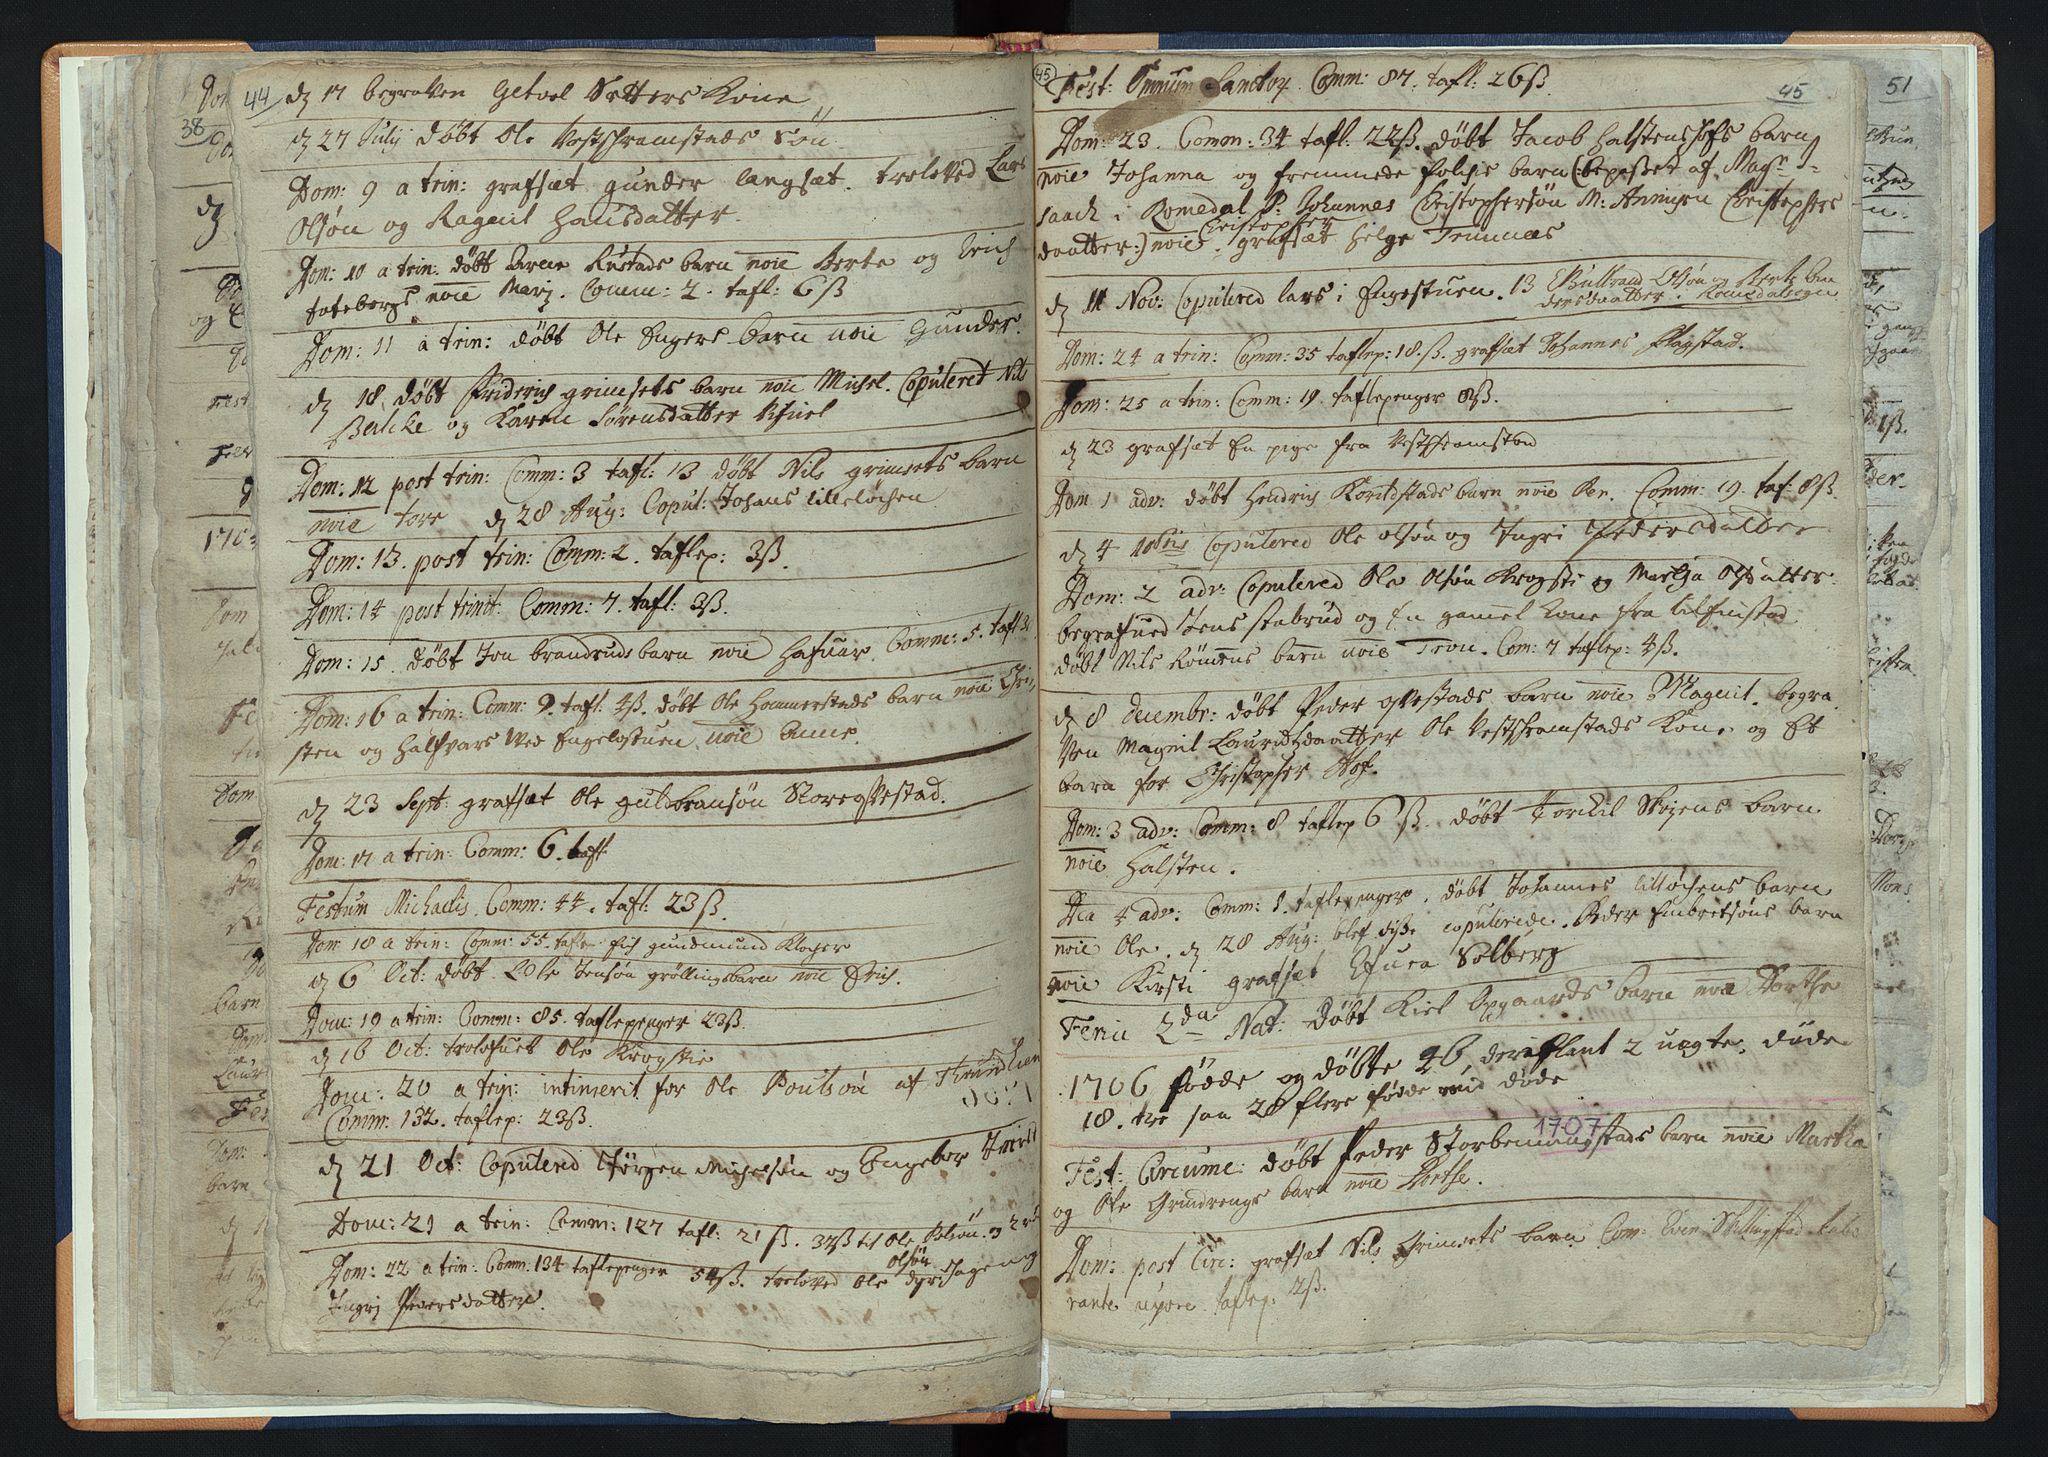 44
d 17 begraven Getvol Setters Kone
d 27 Julij døbt Ole Vestshramstads Søn
Dom: 9 a trin: grafsæt gunder langsæt. troloved Lars
Olsøn og Ragnil Hansdatter.
Dom: 10 a trin: døbt Arne Rustads barn noie Berte og Erich
totebergs noie Marj. Comm: 2. tafl: 6ß
Dom: 11 a trin: døbt Ole Engers barn noie Gunder.
d 18 døbt Friderich grimsets barn noie Michel. Copulered Nil
og Karen Sørensdatter
Dom: 12 post trin: Comm: 3 tafl: 13 døbt Nils grimsets barn
noie tore d 28 Aug: Copul: Johans lilleløchen
Dom: 13. post trin: Comm: 2. taflep: 3ß.
Dom: 14 post trinit: Comm: 7. tafl: 3ß.
Dom: 15. døbt Jon brandruds barn noie Hafuar. Comm: 5. tafl 3
Dom: 16 a trin: Comm: 9. tafl: 4ß. døbt Ole Hommerstads barn noie Chri
sten og Halfvars ved Engelostuen noie Anne.
d 23 Sept: grafsæt Ole guldbransøn Storeqvestad.
Dom: 17 a trin: Comm: 6. tafl:
Festum Michaelis. Comm: 44. tafl: 23ß.
Dom: 18 a trin: Comm: 55. taflep gudmund Kloger
d 6 Oct: døbt Ole Jensøn grøllings barn noie Erich.
Dom: 19 a trin: Comm: 85. taflepenger 23ß.
d 16 Oct: trolofuet Ole Krogstie
Dom: 20 a trin: intimerit for Ole Poulsøn af Trundhiem
Comm: 132. taflep: 23ß.
d 21 Oct: Copulered Jørgen Michelsøn og Engebor
Dom: 21 a trin: Comm: 127 tafl: 21ß. 32ß til Ole Polsøn. og 2
Dom: 22 a trin: Comm: 134 taflepenger 54ß. troloved Ole Olsøn dyrishagen og
Ingrj Pedersdatter.
45
45
Fest: Omnium Sanctor Comm: 87. tafl: 26ß.
Dom: 23. Comm: 34 tafl: 22ß. døbt Jacob Halstenshofs barn
noie Johanna og fremmede folchs barn (: bepasset af Magr I-
saach i Romedal P: Johannes Christophersøn M: Anniken Christophers
daatter:) noie Christopher grafsæt Helge Trunnæs
d 11 Nov: Copulered lars i Engestuen. 13 Gulbrand Olsøn og Berte
dersdaatter. Romedalsogn
Dom: 24 a trin: Comm: 35 taflep: 18.ß. grafsæt Johannes Flagstad.
Dom: 25 a trin: Comm: 19. taflepenger 8ß.
d 23 grafsæt En pige fra Vestshramstad
Dom 1 adv: døbt Hendrich Korildstads barn noie Pen. Comm: 19. taf: 8ß.
d 4 10bris Copulered Ole olsøn og Ingri Pedersdatter
Dom: 2 adv: Copulered Ole Olsøn Krogsti og Martha Olsdatter.
begrafued Jens stabrud og En gammel kone fra
døbt Nils Rømens barn noie Tron. Com: 7 taflep: 4ß.
d 8 decembr: døbt Peder qvestads barn noie Magnil. begra
ven Magnil Lauridzdaatter Ole Vestshramstads Kone og Et
barn for Christopher Hof.
Dom: 3 adv: Comm: 8 taflep 6ß. døbt Torckil Skøjens barn
noie Halsten.
Dca 4 adv: Comm: 1. taflepenger. døbt Johannes lilløchens barn
noie Ole. d 28 Aug: blef disse copulerede. Peder Embretsøns barn
noie Kirsti grafsæt Solberg
Feria 2da Nat: døbt Kiel Opgaards barn noie Dorthe
1706 fødde og døbte 46 deriblant 2 uægte. døde
18. tre saa 28 flere fødde end døde
1707
Fest: Circumc: døbt Peder Storbenningstads barn noie Martha
og Ole Grindrengs barn noie Dorthe.
Dom: post Circ: grafsæt Nils Grimsets barn Com: Even Skillingstad labo
rante uxore taflep: 12ß.
38
51